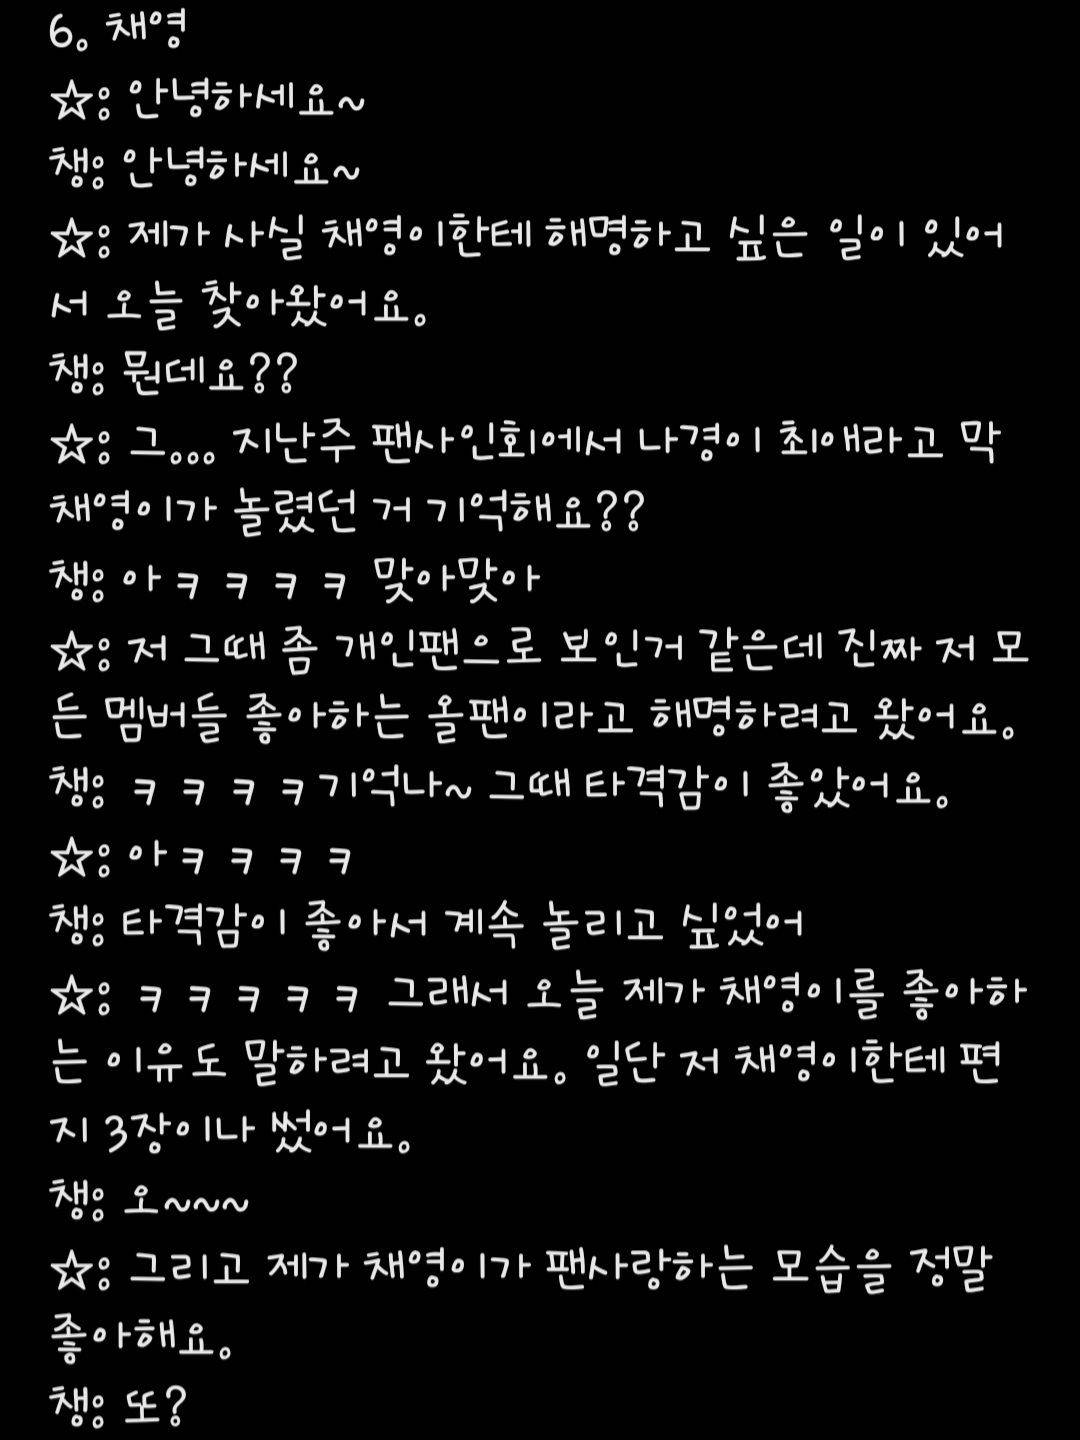 6. 채영
☆: 안녕하세요~
챙: 안녕하세요~
☆: 제가 사실 채영이한테 해명하고 싶은 일이 있어
서 오늘 찾아왔어요.
챙: 뭔데요??
☆: 그... 지난주 팬사인회에서 나경이 최애라고 막
채영이가 놀렸던 거 기억해요??
챙: 아ㅋㅋㅋㅋ 맞아맞아
☆: 저 그때 좀 개인팬으로 보인거 같은데 진짜 저 모
든 멤버들 좋아하는 올팬이라고 해명하려고 왔어요.
챙: ㅋㅋㅋㅋ기억나~ 그때 타격감이 좋았어요.
☆: 아ㅋㅋㅋㅋ
챙: 타격감이 좋아서 계속 놀리고 싶었어
☆: ㅋㅋㅋㅋㅋ 그래서 오늘 제가 채영이를 좋아하
는 이유도 말하려고 왔어요. 일단 저 채영이한테 편
지 3장이나 썼어요.
챙: 오~~~
☆: 그리고 제가 채영이가 팬사랑하는 모습을 정말
좋아해요.
챙: 또?